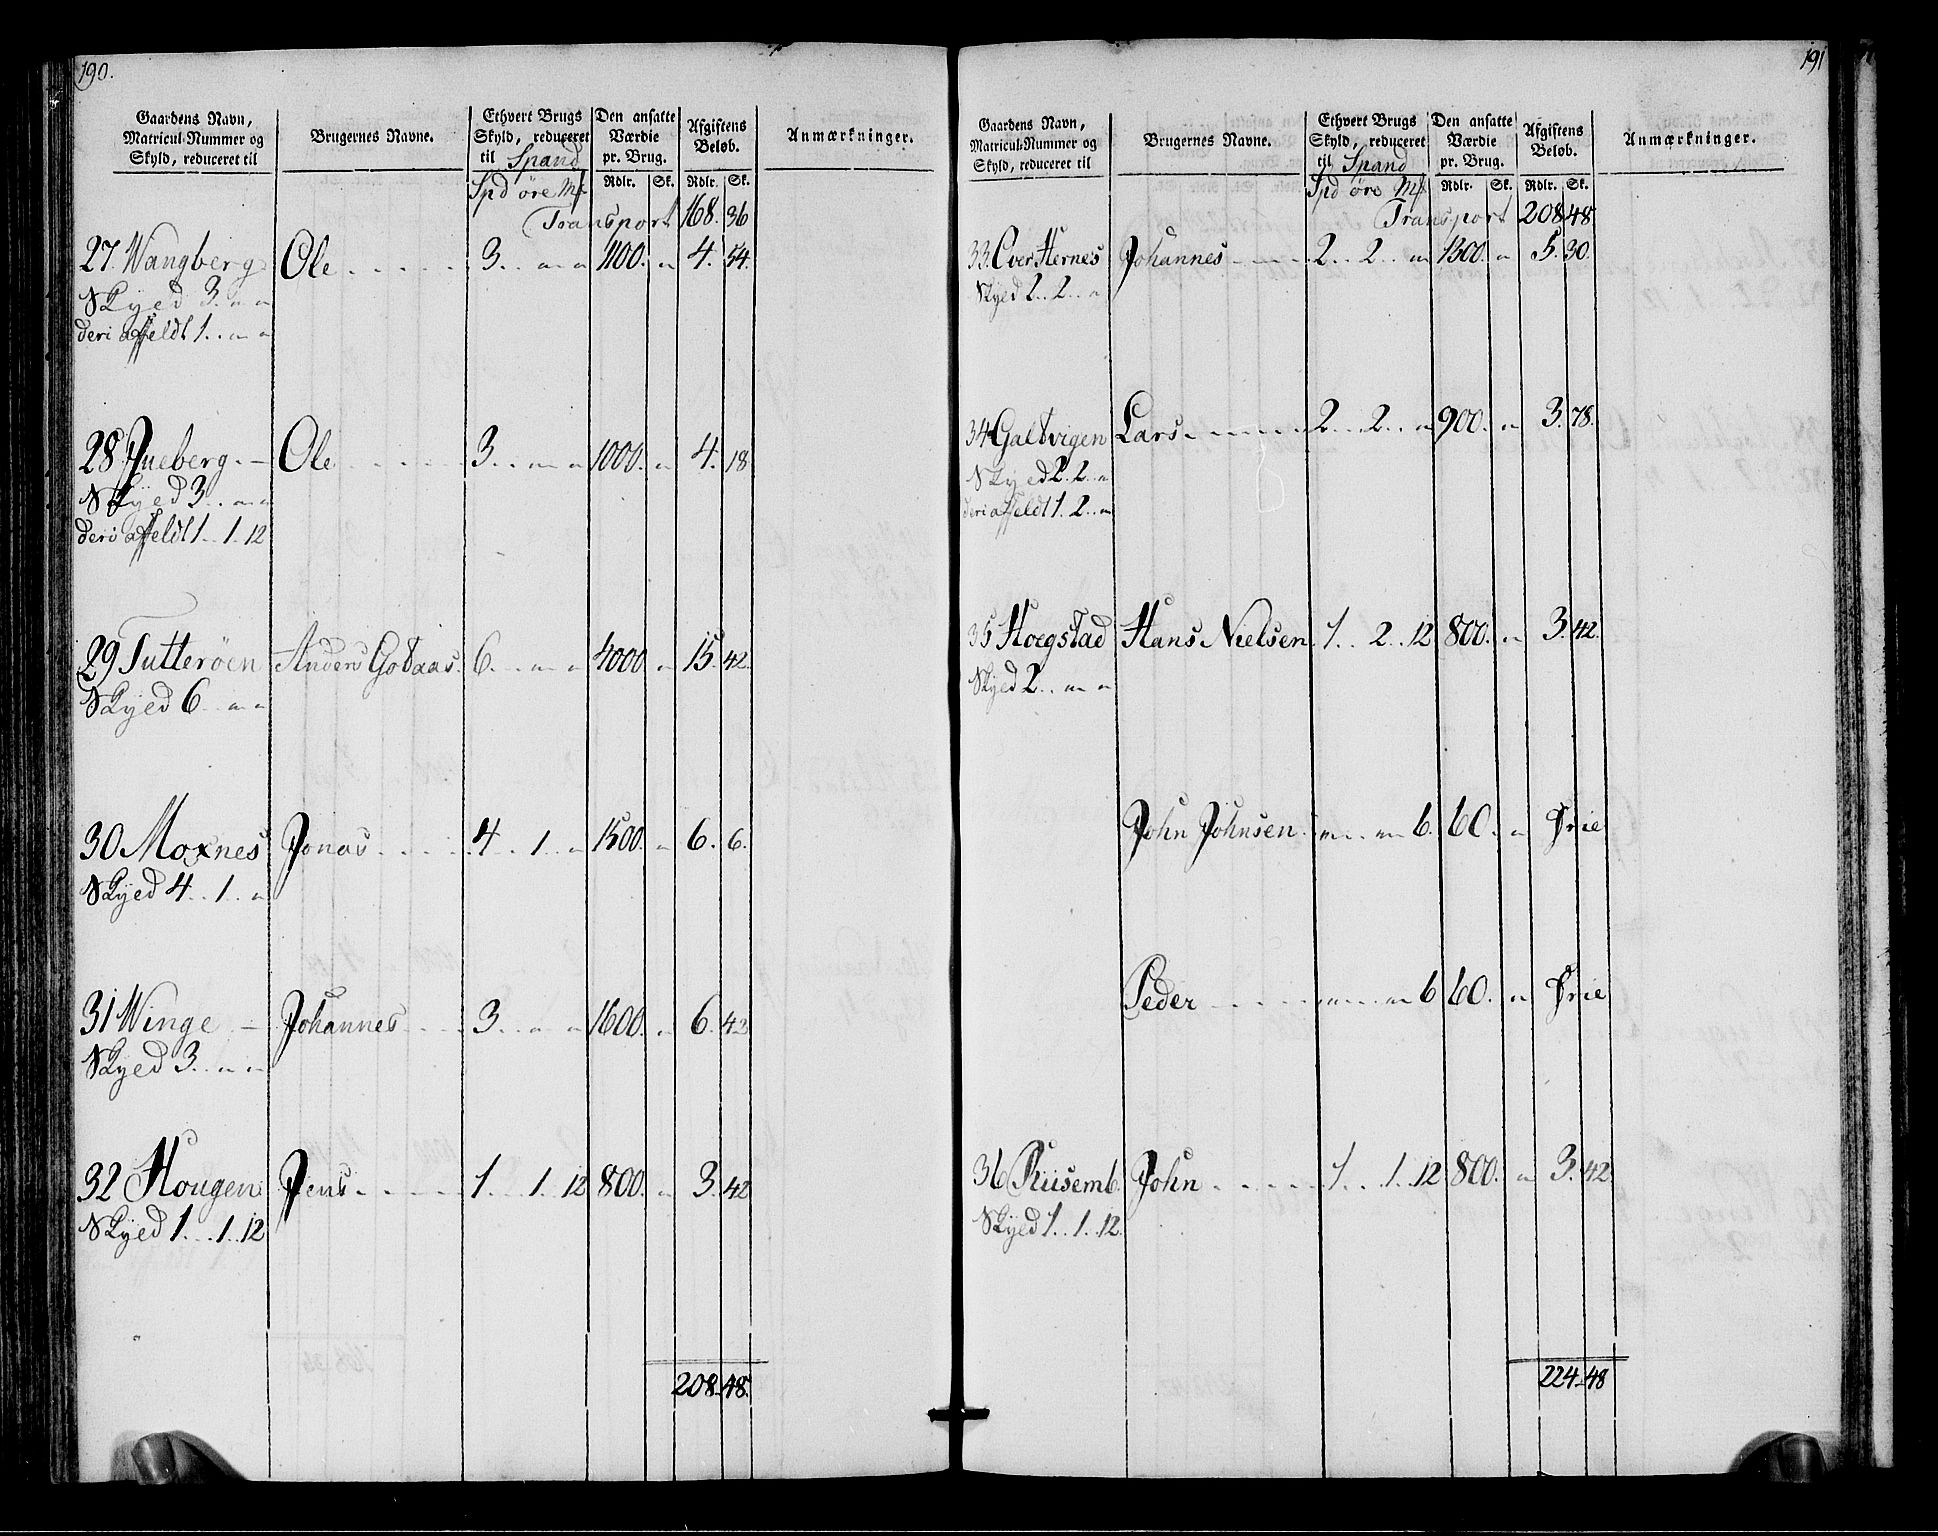 190.
Gaardens Navn, Matricul-Nummer og Skyld, reduceret til
Brugernes Navne.
Ethvert Brugs Skyld, reduceret til Spand
Den ansatte Værdie pr. Brug.
Afgiftens Beløb.
Anmærkninger.
Spd øre Mſ Rdlr. Sk. Rdlr. Sk.
Transport 168. 36
27 Wangberg Ole 3. „ „ 1100. „ 4. 54.
Skyed 3. „ „
deri affeldt 1. „ „
28 Jueberg. Ole 3. „ „ 1000. „ 4. 18
Skyed 3. „ „
deri affeldt 1. 1. 12
29 Tutterøen Anders Godaas. 6. „ „ 4000 „ 15. 42
Skyed 6. „ „
30 Moxnes Jonas 4. 1. „ 1500. „ 6. 6.
Skyed 4. 1. „
31 Winge Johannes 3. „ „ 1600. „ 6. 43
Skyed 3. „ „
32 Hougen Jens 1. 1. 12 800. „ 3. 42
Skyed 1. 1. 12
208. 48.
191
Gaardens Navn, Matricul-Nummer og Skyld, reduceret til
Brugernes Navne.
Ethvert Brugs Skyld, reduceret til Spand
Den ansatte Værdie pr. Brug.
Afgiftens Beløb.
Anmærkninger.
Spd øre Mſ Rdlr. Sk. Rdlr. Sk.
Transport 208 48
33. Over Hernes Johannes 2. 2. „ 1300. „ 5. 30.
Skyed 2. 2. „
34 Galtvigen Lars 2. 2. „ 900. „ 3. 78.
Skyed 2. 2. „
deri affeldt 1. 2. „
35 Hoegstad Hans Nielsen 1. 2. 12 800. „ 3. 42.
Skyed 2. „ „
John Johnsen „ „ 6. 60. „ Frie
Peder „ „ 6 60. „ Frie
36 Riisemb. John 1. 1. 12 800. „ 3. 42
Skyed 1. 1. 12.
224. 48